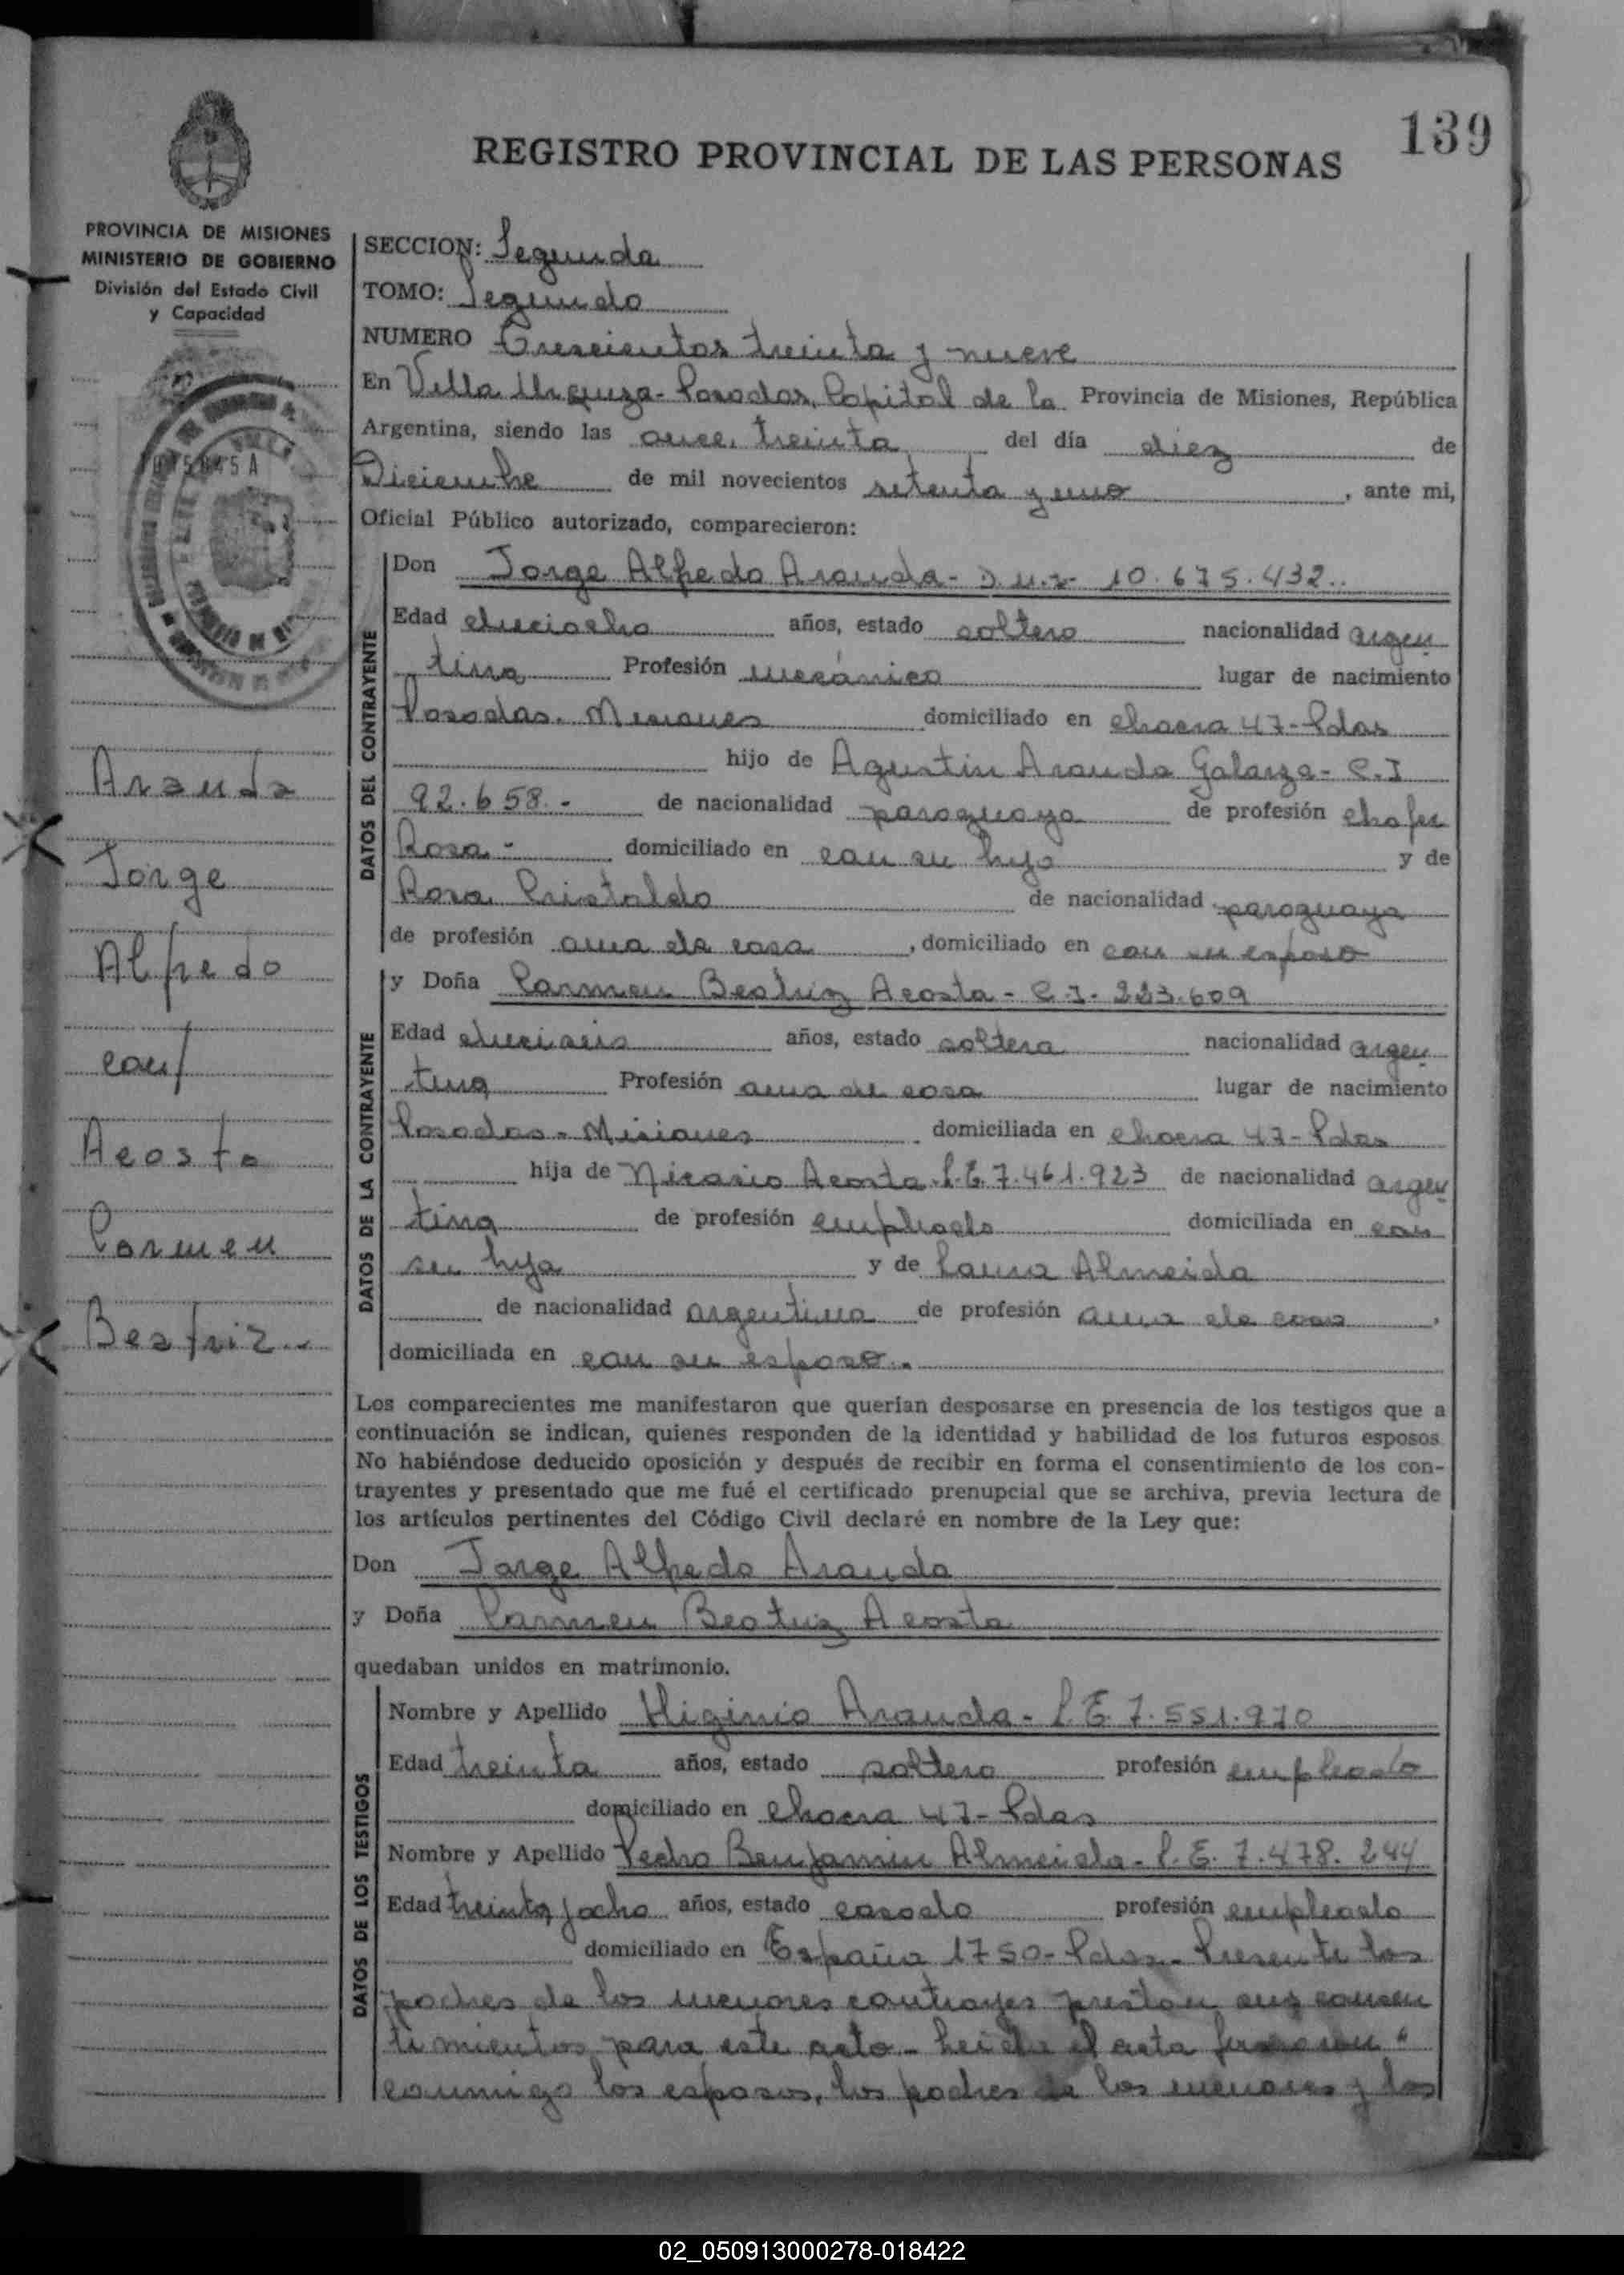 139
REGISTRO PROVINCIAL DE LAS PERSONAS
PROVINCIA DE MISIONES
MINISTERIO DE GOBIERNO
División del Estado Civil
y Capacidad
Aranda
Jorge
Alfredo
con/
Acosta
Carmen
Beatriz..
SECCION: Segunda
TOMO: Segundo
NUMERO Trescientos treinta y nueve
En Villa Urquiza - Posadas, Capital de la Provincia de Misiones, República
Argentina, siendo las once, treinta del día diez de
Diciembre de mil novecientos setenta y uno, ante mi,
Oficial Público autorizado, comparecieron:
DATOS DEL CONTRAYENTE
Don Jorge Alfredo Aranda - D.U. 10.675.432..
Edad dieciocho años, estado soltero nacionalidad argen
tina Profesión mecánico lugar de nacimiento
Posadas. Misiones domiciliado en chacra 47 - Pdas
hijo de Agustin Aranda Galarza - C.I
92.658.- de nacionalidad paraguaya de profesión chofer
Rosa - domiciliado en con su hijo y de
Rosa Cristaldo de nacionalidad paraguaya
de profesión ama de casa, domiciliado en con su esposo
DATOS DE LA CONTRAYENTE
y Doña Carmen Beatriz Acosta - C.I. 223.609
Edad dieciseis años, estado soltera nacionalidad argen
tina Profesión ama de casa lugar de nacimiento
Posadas - Misiones domiciliada en chacra 47 - Pdas
hija de Nicasio Acosta. L.E. 7.461.923 de nacionalidad argen
tina de profesión empleado domiciliada en con
su hija y de Laura Almeida
de nacionalidad argentina de profesión ama de casa,
domiciliada en con su esposo.-
Los comparecientes me manifestaron que querían desposarse en presencia de los testigos que a
continuación se indican, quienes responden de la identidad y habilidad de los futuros esposos.
No habiéndose deducido oposición y después de recibir en forma el consentimiento de los con-
trayentes y presentado que me fué el certificado prenupcial que se archiva, previa lectura de
los artículos pertinentes del Código Civil declaré en nombre de la Ley que:
Don Jorge Alfredo Aranda
y Doña Carmen Beatriz Acosta
quedaban unidos en matrimonio.
DATOS DE LOS TESTIGOS
Nombre y Apellido Higinio Aranda - L.E. 7.551.970
Edad treinta años, estado soltero profesión empleado
domiciliado en chacra 47 - Pdas
Nombre y Apellido Pedro Benjamin Almeida - L.E. 7.478.244
Edad treinta y ocho años, estado casado profesión empleado
domiciliado en España 1750 - Pdas - Presente los
padres de los menores contrayes prestan sus consen
timientos para este acto - Leida el acta firmaron "
conmigo los esposos, los padres de los menores y los
02_050913000278-018422